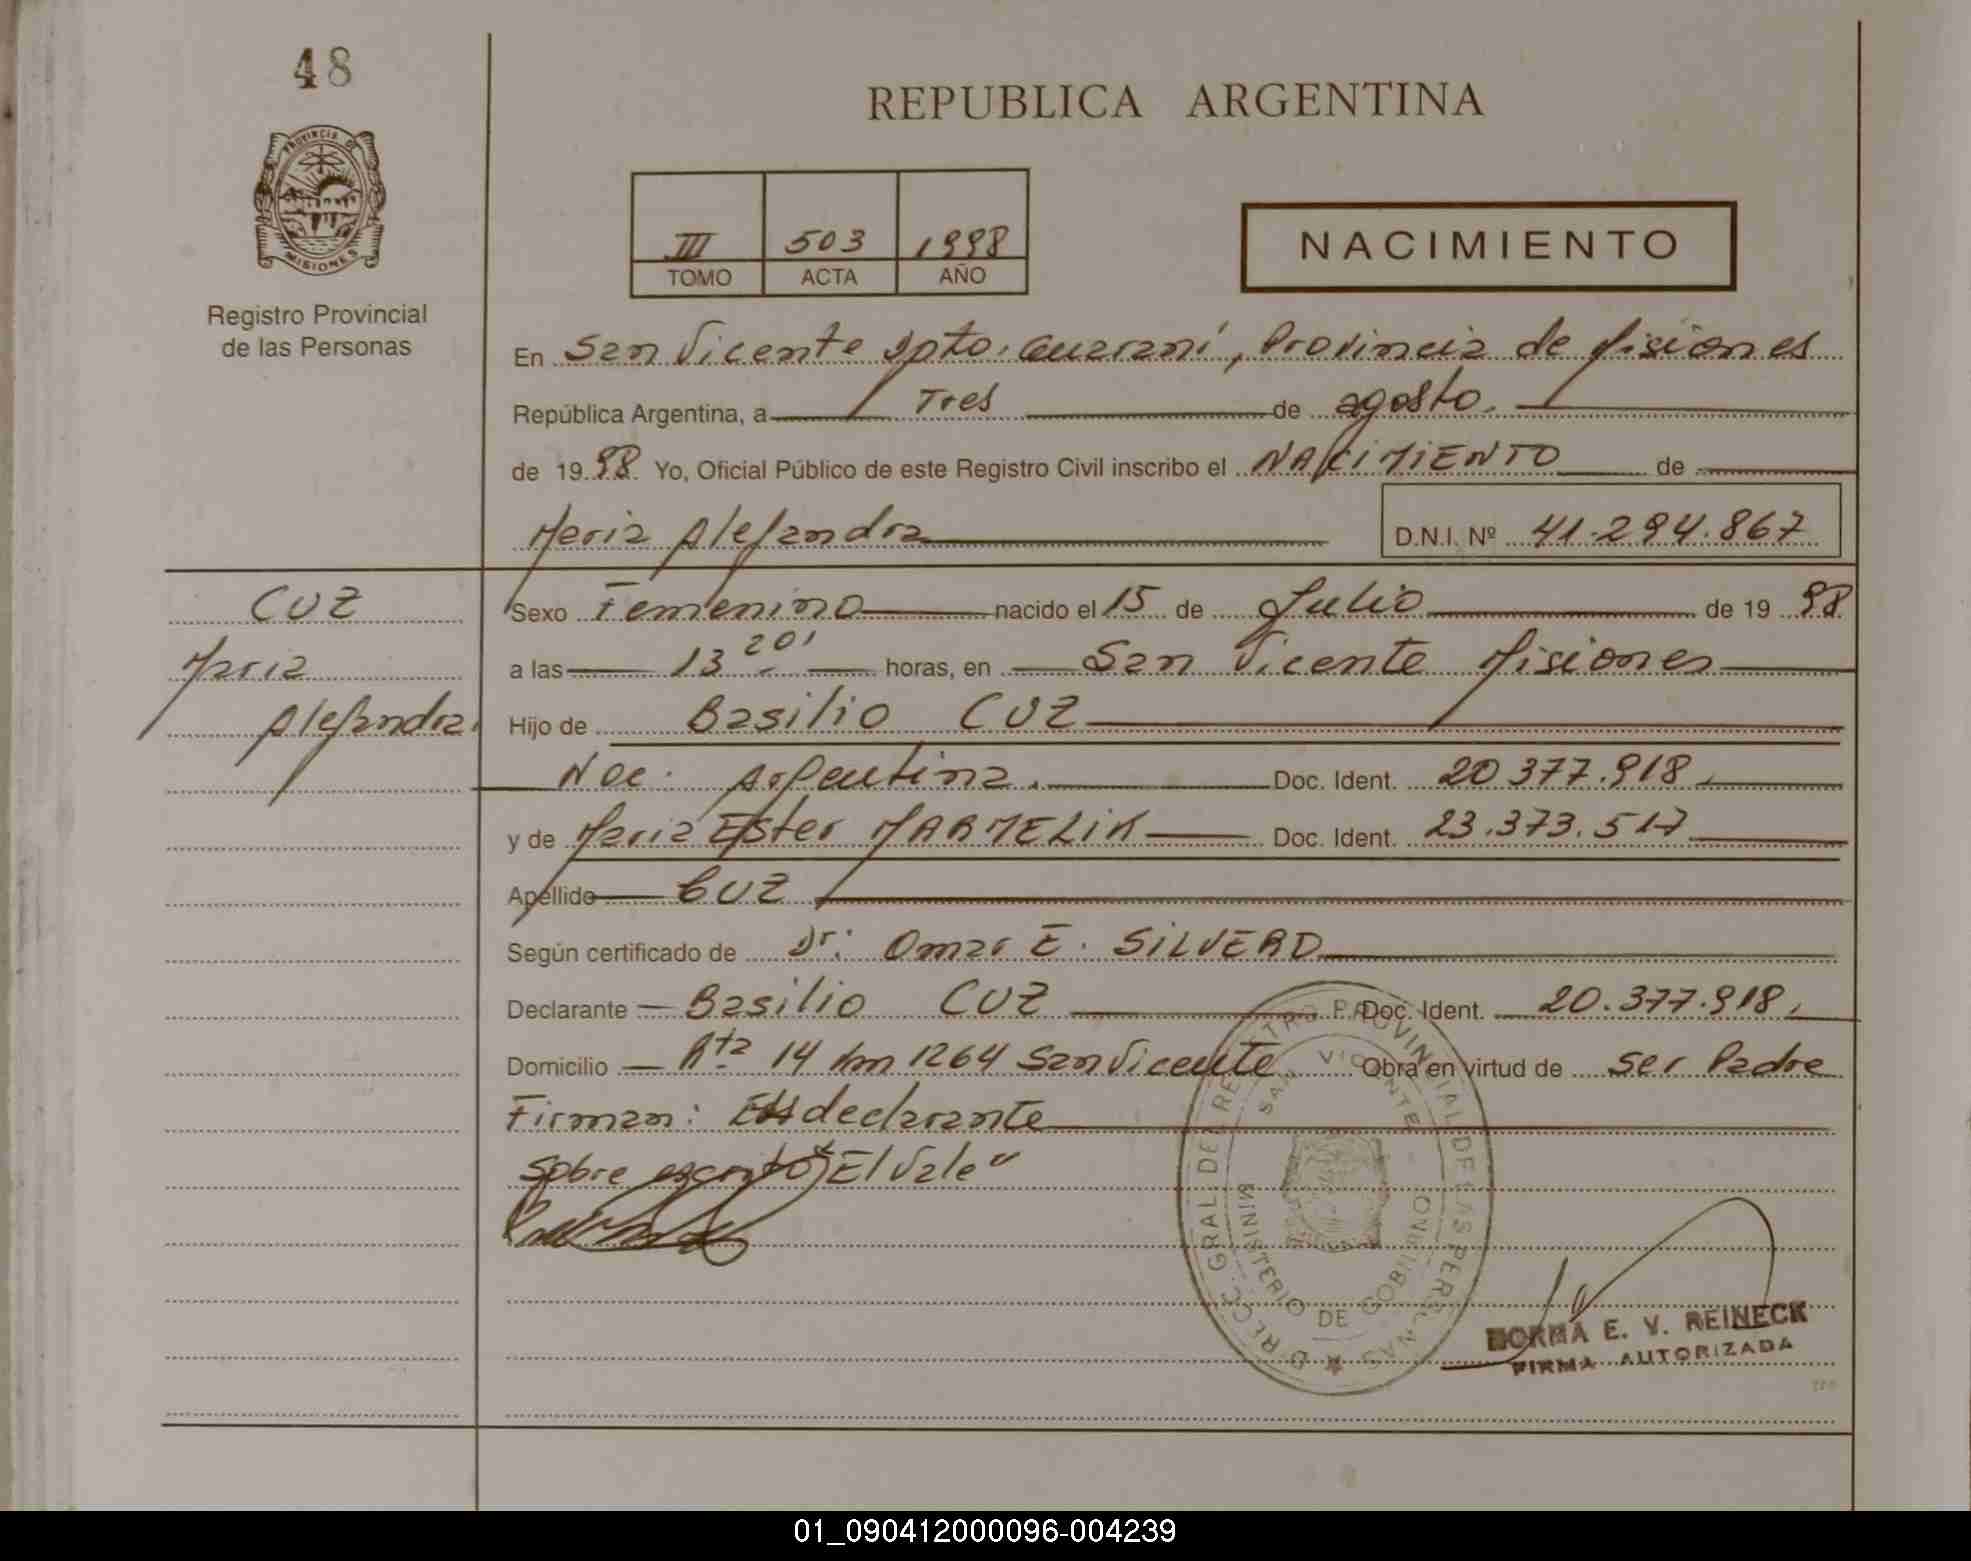 48
REPUBLICA ARGENTINA
PROVINCIA DE
MISIONES
III 503 1998
TOMO ACTA AÑO
NACIMIENTO
Registro Provincial
de las Personas
En San Vicente Dpto. Guaraní, Provincia de Misiones
República Argentina, a Tres de agosto.
de 1998. Yo, Oficial Público de este Registro Civil inscribo el NACIMIENTO de
Maria Alejandra D.N.I. Nº 41.294.867
CUZ
Maria
Alejandra.
Sexo Femenino nacido el 15 de Julio de 19 98
a las 13 20' horas, en San Vicente Misiones
Hijo de Basilio CUZ
Nac. Argentina. Doc. Ident. 20.377.918.
y de Maria Ester MARMELIK Doc. Ident. 23.373.517
Apellido CUZ
Según certificado de Dr: Omar E. SILVERO
Declarante Basilio CUZ Doc. Ident. 20.377.918.
Domicilio Rta 14 km 1264 San Vicente Obra en virtud de ser Padre
Firman: El declarante
Sobre escrito "El Vale"
DIRECC. GRAL. DEL REGISTRO PROVINCIAL DE LAS PERSONAS
SAN VICENTE
MINISTERIO DE GOBIERNO
NORMA E. V. REINECK
FIRMA AUTORIZADA
01_090412000096-004239